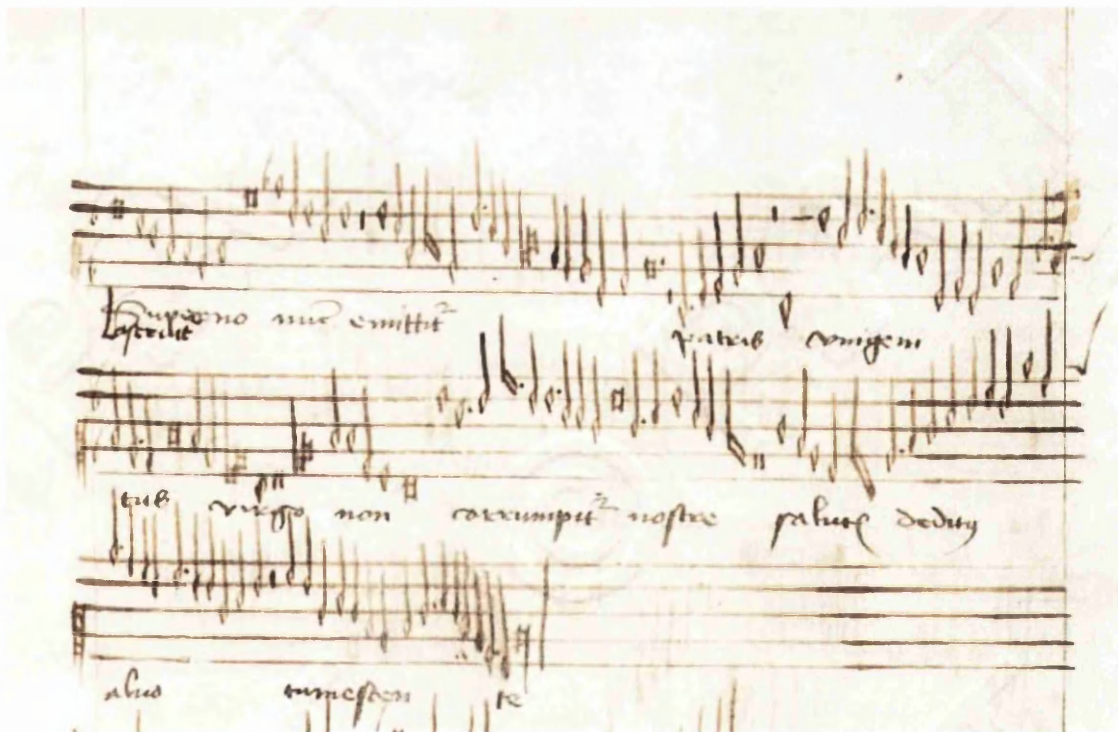 Superno nuc emittit patris vnigeni
tus virgo non corrumpit nostre salut deditus
aluo tumescen te